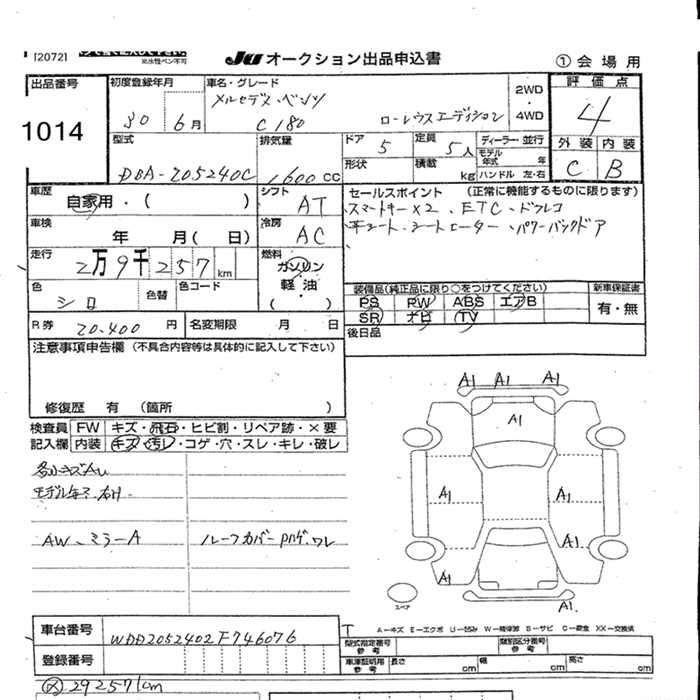 [2072]
※水性ペン不可
JU オークション出品申込書
① 会場用
出品番号
1014
初度登録年月
30 6月
車名・グレード
メルセデス・ベンツ
C180 ローレウスエディション
2WD
4WD
評価点
4
外装 内装
C B
型式
DBA-205240C
排気量
1600 CC
ドア 5
定員 5人
ディーラー・並行
モデル年式 年
形状
積載 kg
ハンドル 左・右
車歴
自家用・( )
シフト
AT
セールスポイント (正常に機能するものに限ります)
スマートキー×2 、ETC、ドラレコ
革シート、シートヒーター、パワーバックドア
車検
年 月( 日)
冷房
AC
走行
2万9千257km
燃料
ガソリン
軽油・
( )
色
シロ
色替
色コード
装備品(純正品に限り○をつけてください)
新車保証書
PS PW ABS エアB
有・無
SR ナビ TV
R券 20.400 円
名変期限 月 日
後日品
注意事項申告欄 (不具合内容等は具体的に記入して下さい)
修復歴 有 (箇所 )
検査員 FW キズ・飛石・ヒビ割・リペア跡・×要
記入欄 内装 キズ・汚レ・コゲ・穴・スレ・キレ・破レ
各小キズAU
AW、ミラーA
ルーフカバー ワレ
A1 A1 A1
A1
A1 A1
A1
A1
A1
スペア
A-キズ E-エクボ U-凹み W-補修跡 S-サビ C-腐食 XX-交換済
車台番号
WDD2052402F746076
登録番号
型式指定番号 参考
類別区分番号 参考
車庫証明用 参考
長さ cm
幅 cm
高さ cm